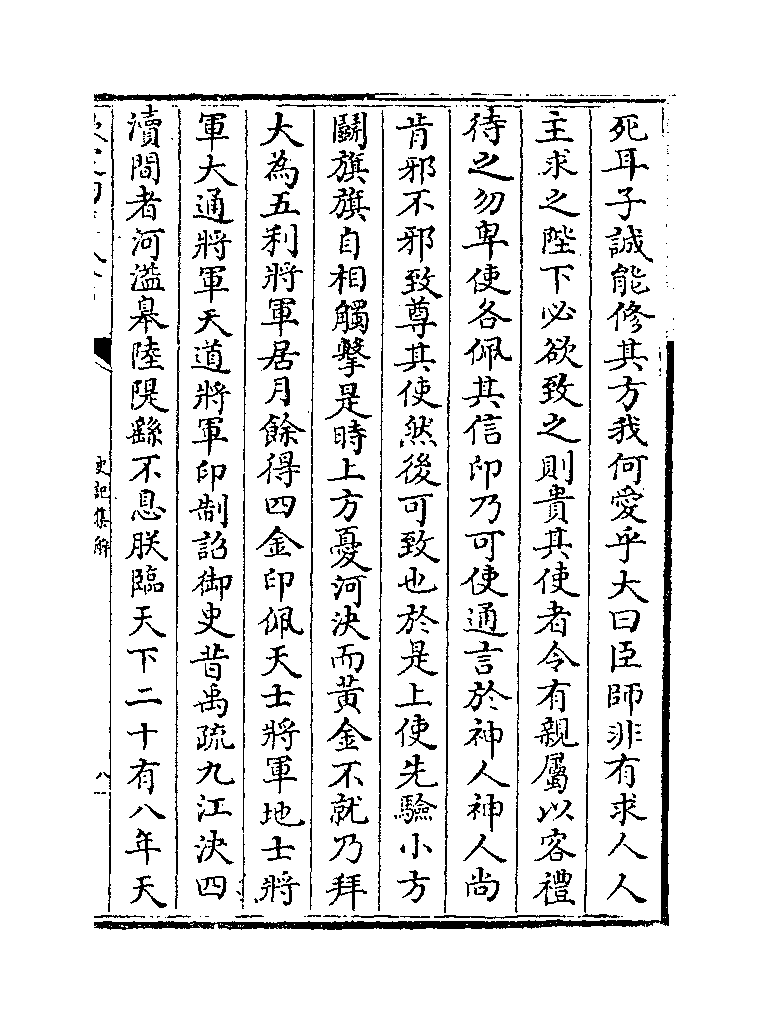 死耳子誠能修其方我何愛乎大曰臣師非有求人人
主求之陛下必欲致之則貴其使者令有親屬以客禮
待之勿卑使各佩其信印乃可使通言於神人神人尚
肯邪不邪致尊其使然後可致也於是上使先驗小方
鬬旗旗自相觸擊是時上方憂河決而黃金不就乃拜
大為五利將軍居月餘得四金印佩天士將軍地士將
軍大通將軍天道將軍印制詔御史昔禹疏九江決四
瀆間者河溢臯陸隄繇不息朕臨天下二十有八年天
史記集解
八